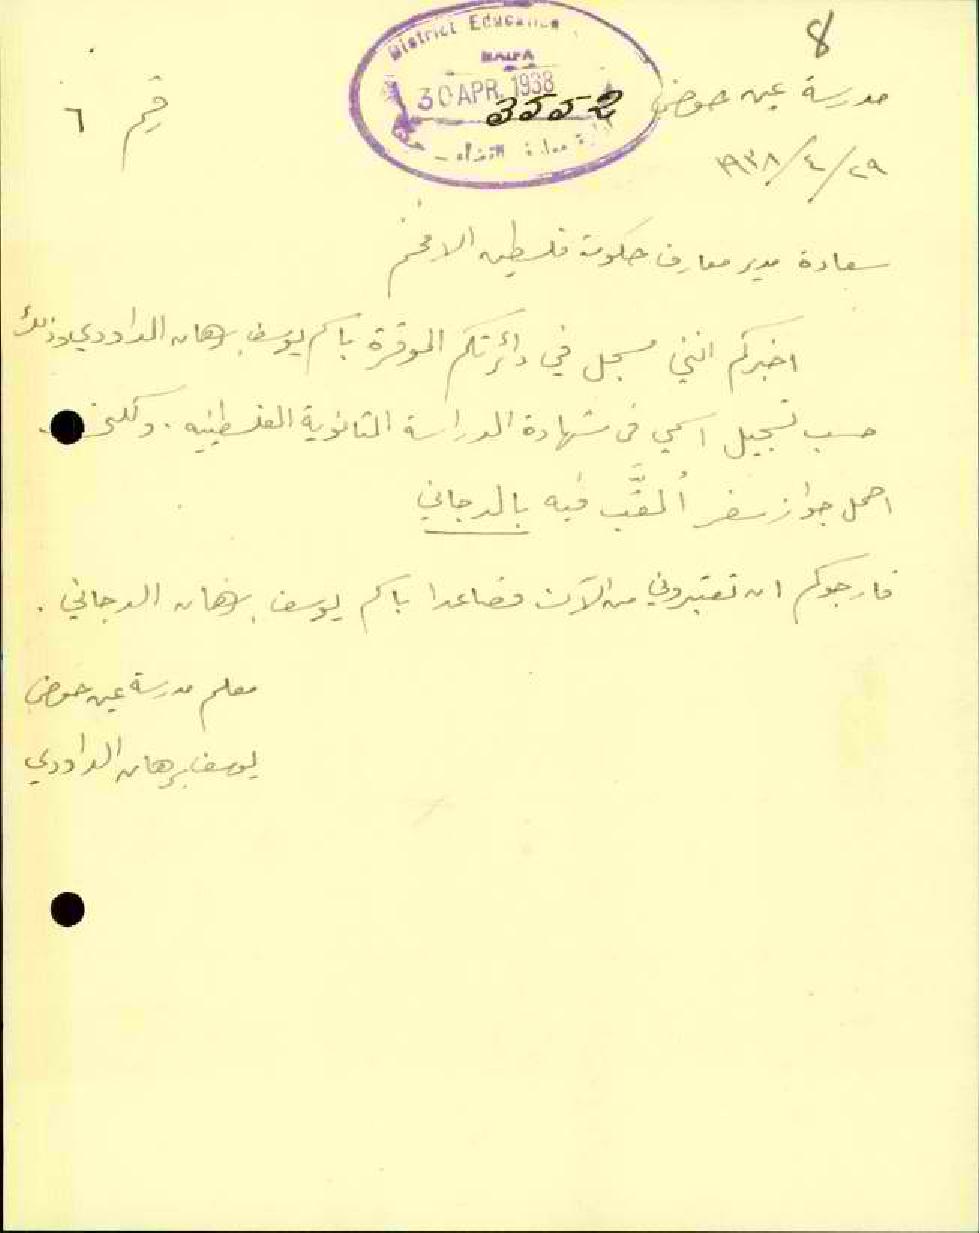 8
District Education
HAIFA
30 APR. 1938
3552
مدرسة عين حوض
٢٩/٤/١٩٣٨
٦
سعادة مدير معارف حكومة فلسطين الافخم
اخبركم انني مسجل في دائرتكم الموقرة باسم يوسف برهان الداودي وذلك
حسب تسجيل اسمي في شهادة الدراسة الثانوية الفلسطينيه. ولكني
احمل جواز سفر أُلقَّب فيه بالدجاني
فارجوكم ان تعتبروني من الآن فصاعدا باسم يوسف برهان الدجاني.
معلم مدرسة عين حوض
يوسف برهان الداودي